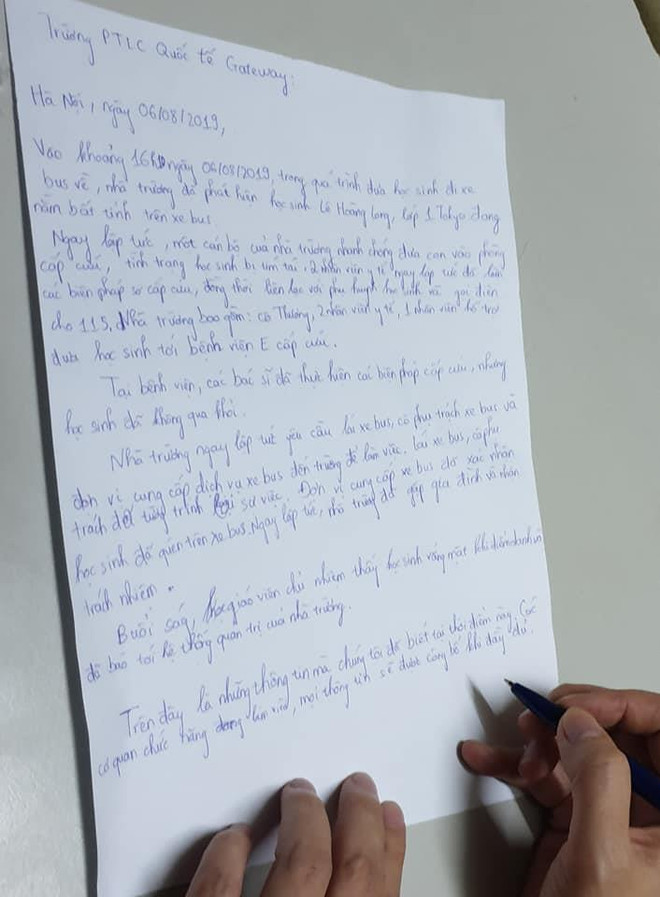 Trường PTLC Quốc tế Gateway.
Hà Nội, ngày 06/08/2019,
Vào khoảng 16h ngày 06/08/2019, trong quá trình đưa học sinh đi xe
bus về, nhà trường đã phát hiện học sinh Lê Hoàng Long, lớp 1 Tokyo đang
nằm bất tỉnh trên xe bus.
Ngay lập tức, một cán bộ của nhà trường nhanh chóng đưa con vào phòng
cấp cứu, tình trạng học sinh bị tím tái, 2 nhân viên y tế ngay lập tức đã làm
các biện pháp sơ cấp cứu, đồng thời liên lạc với phụ huynh học sinh và gọi điện
cho 115. Nhà trường bao gồm: cô Thương, 2 nhân viên y tế, 1 nhân viên hỗ trợ
đưa học sinh tới bệnh viện E cấp cứu.
Tại bệnh viện, các bác sĩ đã thực hiện các biện pháp cấp cứu, nhưng
học sinh đã không qua khỏi.
Nhà trường ngay lập tức yêu cầu lái xe bus, cô phụ trách xe bus và
đơn vị cung cấp dịch vụ xe bus đến trường để làm việc, lái xe bus, cô phụ
trách để tường trình sự việc. Đơn vị cung cấp xe bus đã xác nhận
học sinh đã quên trên xe bus. Ngay lập tức, nhà trường đã gặp gia đình và nhận
trách nhiệm.
Buổi sáng, giáo viên chủ nhiệm thấy học sinh vắng mặt khi điểm danh và
đã báo tới hệ thống quản trị của nhà trường.
Trên đây là những thông tin mà chúng tôi đã biết tại thời điểm này. Các
cơ quan chức năng đang làm việc, mọi thông tin sẽ được công bố khi đầy đủ.